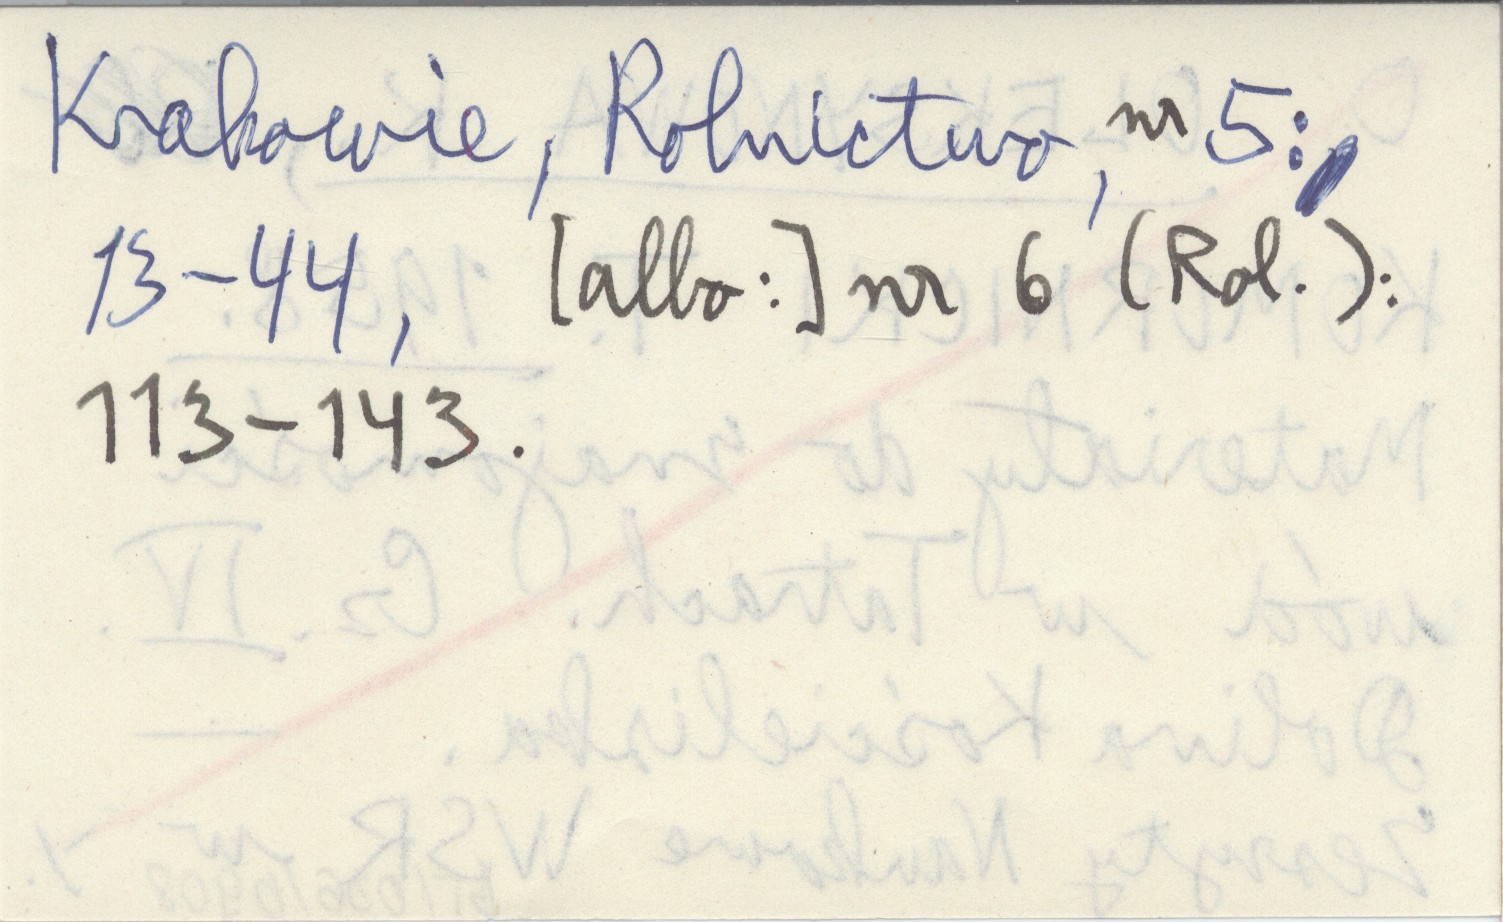 Krakowie, Rolnictwo, nr 5:,
13-44, [albo:] nr 6 (Rol.):
113-143.